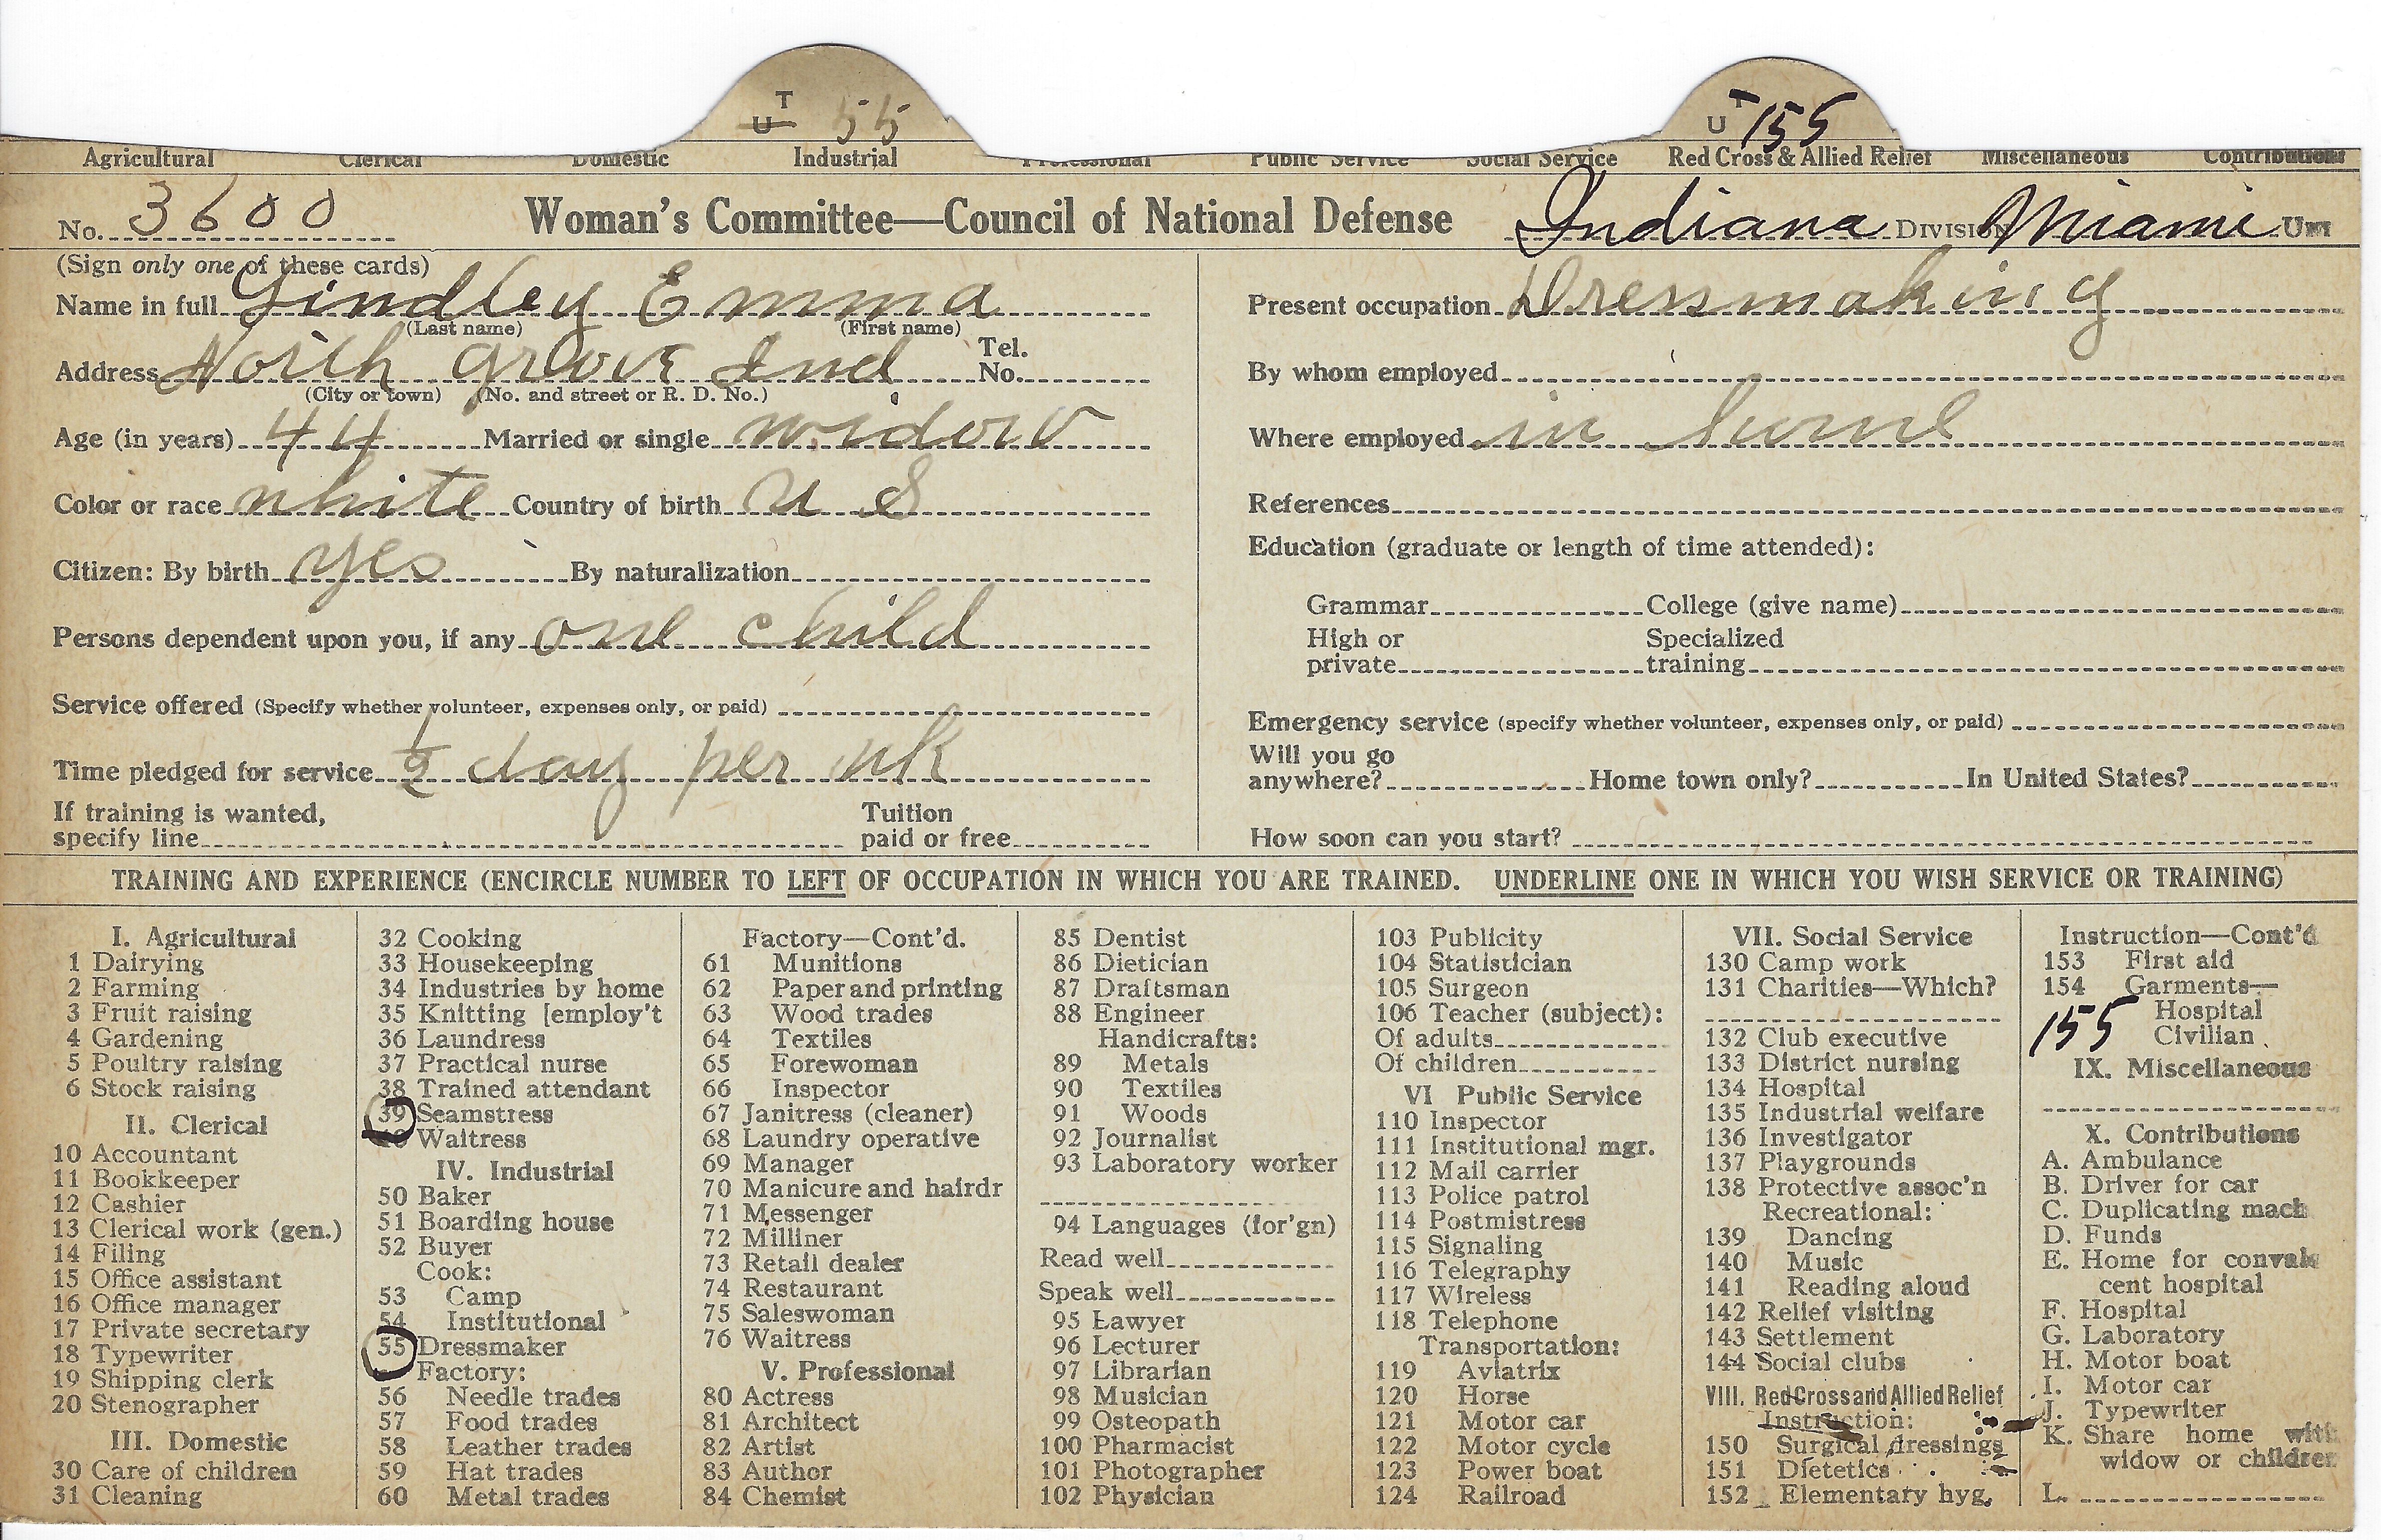 T
U 55
T
U 155
Agricultural Clerical Domestic Industrial Professional Public Service Social Service Red Cross & Allied Relief Miscellaneous Contributions
No. 3600 Woman's Committee—Council of National Defense Indiana Division Miami Unit
(Sign only one of these cards)
Name in full Lindley Emma
(Last name) (First name)
Address North Grove Ind Tel. No.
(City or town) (No. and street or R. D. No.)
Age (in years) 44 Married or single widow
Color or race white Country of birth U S
Citizen: By birth yes By naturalization
Persons dependent upon you, if any one child
Service offered (Specify whether volunteer, expenses only, or paid)
Time pledged for service 1/2 day per wk
If training is wanted, specify line Tuition paid or free
Present occupation Dressmaking
By whom employed
Where employed in home
References
Education (graduate or length of time attended):
Grammar College (give name)
High or private Specialized training
Emergency service (specify whether volunteer, expenses only, or paid)
Will you go anywhere? Home town only? In United States?
How soon can you start?
TRAINING AND EXPERIENCE (ENCIRCLE NUMBER TO LEFT OF OCCUPATION IN WHICH YOU ARE TRAINED. UNDERLINE ONE IN WHICH YOU WISH SERVICE OR TRAINING)
I. Agricultural
1 Dairying
2 Farming
3 Fruit raising
4 Gardening
5 Poultry raising
6 Stock raising
II. Clerical
10 Accountant
11 Bookkeeper
12 Cashier
13 Clerical work (gen.)
14 Filing
15 Office assistant
16 Office manager
17 Private secretary
18 Typewriter
19 Shipping clerk
20 Stenographer
III. Domestic
30 Care of children
31 Cleaning
32 Cooking
33 Housekeeping
34 Industries by home
35 Knitting [employ't
36 Laundress
37 Practical nurse
38 Trained attendant
39 Seamstress
40 Waitress
IV. Industrial
50 Baker
51 Boarding house
52 Buyer
Cook:
53 Camp
54 Institutional
55 Dressmaker
Factory:
56 Needle trades
57 Food trades
58 Leather trades
59 Hat trades
60 Metal trades
Factory—Cont'd.
61 Munitions
62 Paper and printing
63 Wood trades
64 Textiles
65 Forewoman
66 Inspector
67 Janitress (cleaner)
68 Laundry operative
69 Manager
70 Manicure and hairdr
71 Messenger
72 Milliner
73 Retail dealer
74 Restaurant
75 Saleswoman
76 Waitress
V. Professional
80 Actress
81 Architect
82 Artist
83 Author
84 Chemist
85 Dentist
86 Dietician
87 Draftsman
88 Engineer
Handicrafts:
89 Metals
90 Textiles
91 Woods
92 Journalist
93 Laboratory worker
94 Languages (for'gn)
Read well
Speak well
95 Lawyer
96 Lecturer
97 Librarian
98 Musician
99 Osteopath
100 Pharmacist
101 Photographer
102 Physician
103 Publicity
104 Statistician
105 Surgeon
106 Teacher (subject):
Of adults
Of children
VI Public Service
110 Inspector
111 Institutional mgr.
112 Mail carrier
113 Police patrol
114 Postmistress
115 Signaling
116 Telegraphy
117 Wireless
118 Telephone
Transportation:
119 Aviatrix
120 Horse
121 Motor car
122 Motor cycle
123 Power boat
124 Railroad
VII. Social Service
130 Camp work
131 Charities—Which?
132 Club executive
133 District nursing
134 Hospital
135 Industrial welfare
136 Investigator
137 Playgrounds
138 Protective assoc'n
Recreational:
139 Dancing
140 Music
141 Reading aloud
142 Relief visiting
143 Settlement
144 Social clubs
VIII. Red Cross and Allied Relief
Instruction:
150 Surgical dressings
151 Dietetics
152 Elementary hyg.
Instruction—Cont'd
153 First aid
154 Garments—
Hospital
155 Civilian
IX. Miscellaneous
X. Contributions
A. Ambulance
B. Driver for car
C. Duplicating mach
D. Funds
E. Home for convales
cent hospital
F. Hospital
G. Laboratory
H. Motor boat
I. Motor car
J. Typewriter
K. Share home with
widow or children
L.